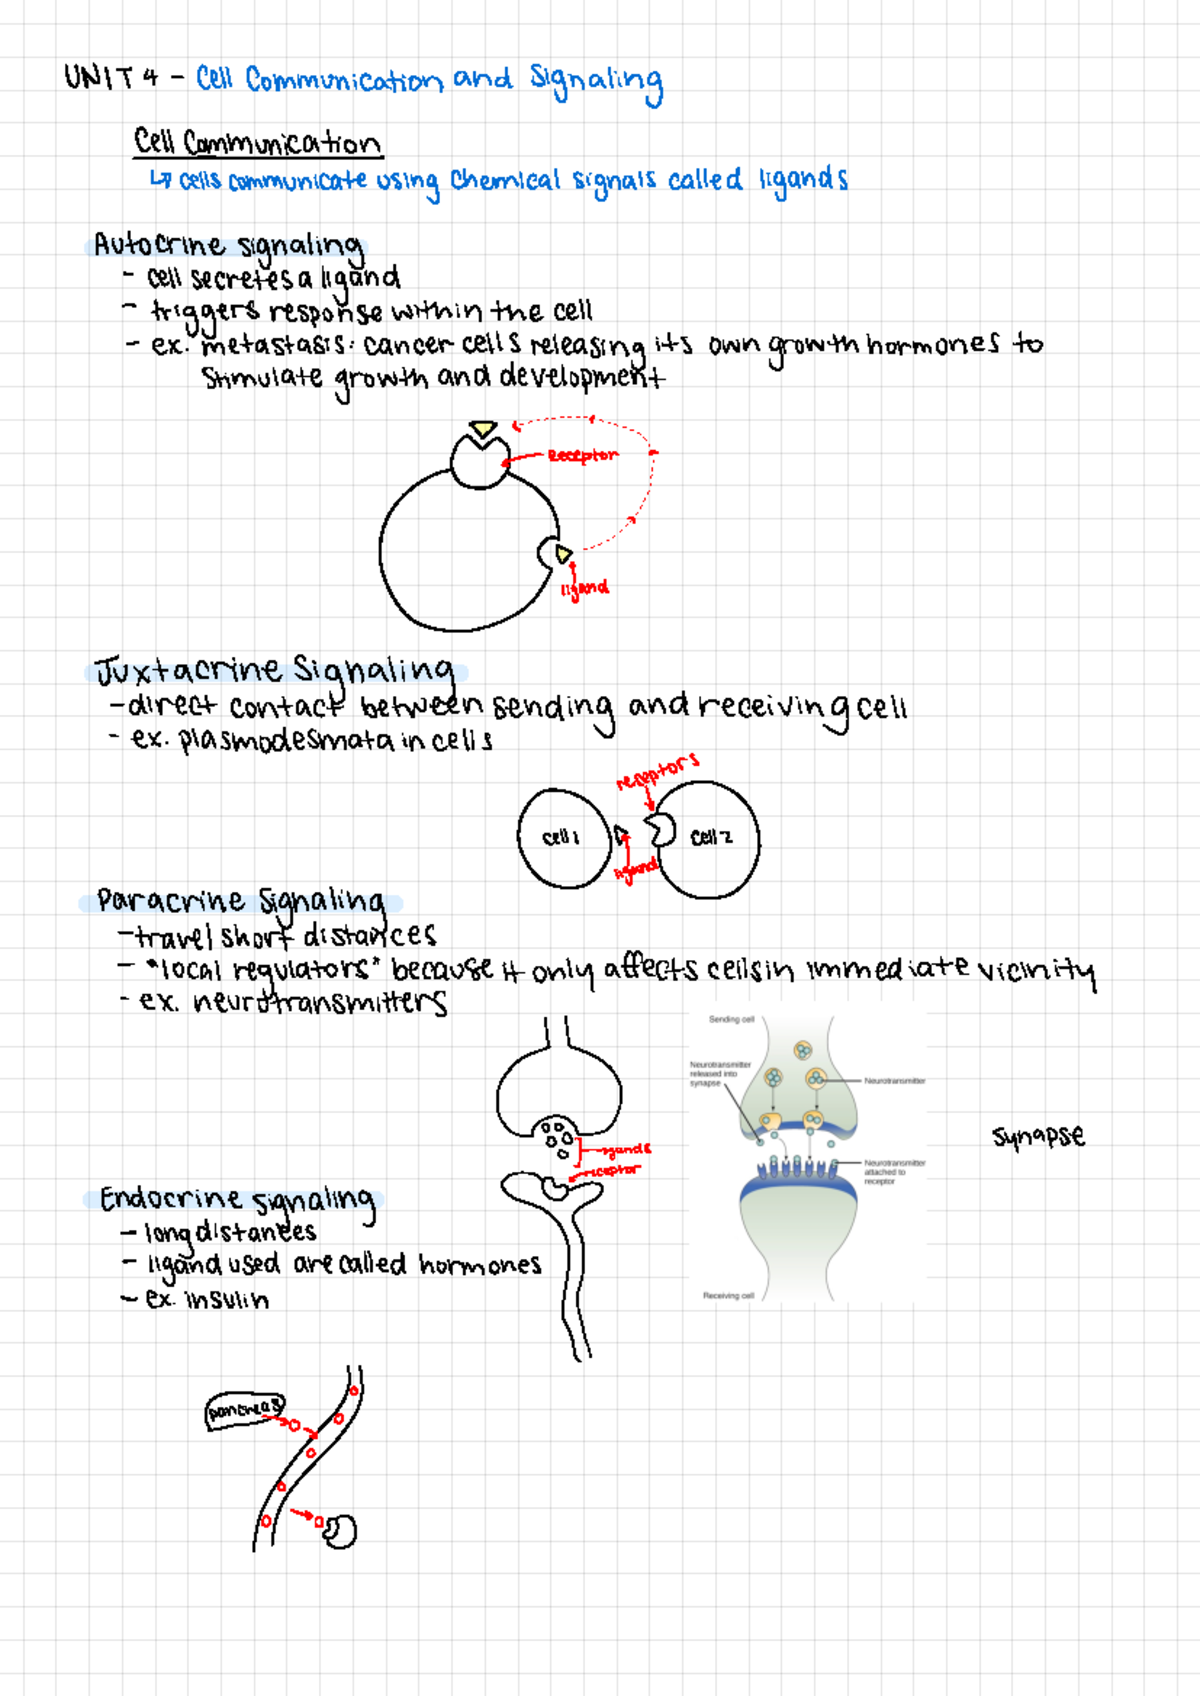 UNIT 4 - Cell Communication and Signaling
Cell Communication
↳ cells communicate using chemical signals called ligands
Autocrine signaling
- cell secretes a ligand
- triggers response within the cell
- ex. metastasis: cancer cells releasing its own growth hormones to
stimulate growth and development
receptor
ligand
Juxtacrine Signaling
- direct contact between sending and receiving cell
- ex. plasmodesmata in cells
receptors
cell 1
cell 2
ligand
Paracrine Signaling
- travel short distances
- "local regulators" because it only affects cells in immediate vicinity
- ex. neurotransmitters
Sending cell
Neurotransmitter
released into
synapse
Neurotransmitter
synapse
ligands
receptor
Neurotransmitter
attached to
receptor
Receiving cell
Endocrine signaling
- long distances
- ligand used are called hormones
- ex. insulin
pancreas